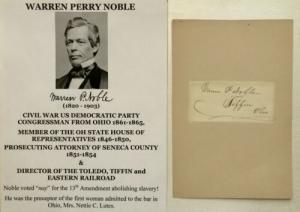 WARREN PERRY NOBLE
Warren P. Noble
(1820 - 1903)
CIVIL WAR US DEMOCRATIC PARTY
CONGRESSMAN FROM OHIO 1861-1865,
MEMBER OF THE OH STATE HOUSE OF
REPRESENTATIVES 1846-1850,
PROSECUTING ATTORNEY OF SENECA COUNTY
1851-1854
&
DIRECTOR OF THE TOLEDO, TIFFIN and
EASTERN RAILROAD
Noble voted "nay" for the 13th Amendment abolishing slavery!
He was the preceptor of the first woman admitted to the bar in
Ohio, Mrs. Nettie C. Lutes.
Warren P. Noble
Tiffin
Ohio